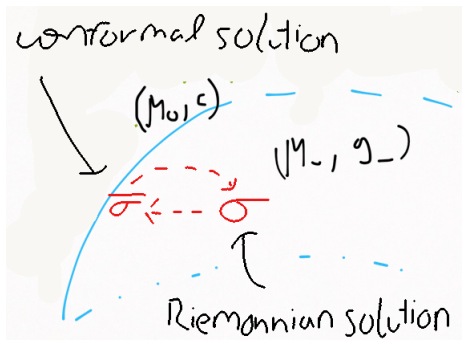 conformal solution
(M₀, c)
(M₋, g₋)
σ̅ σ
Riemannian solution